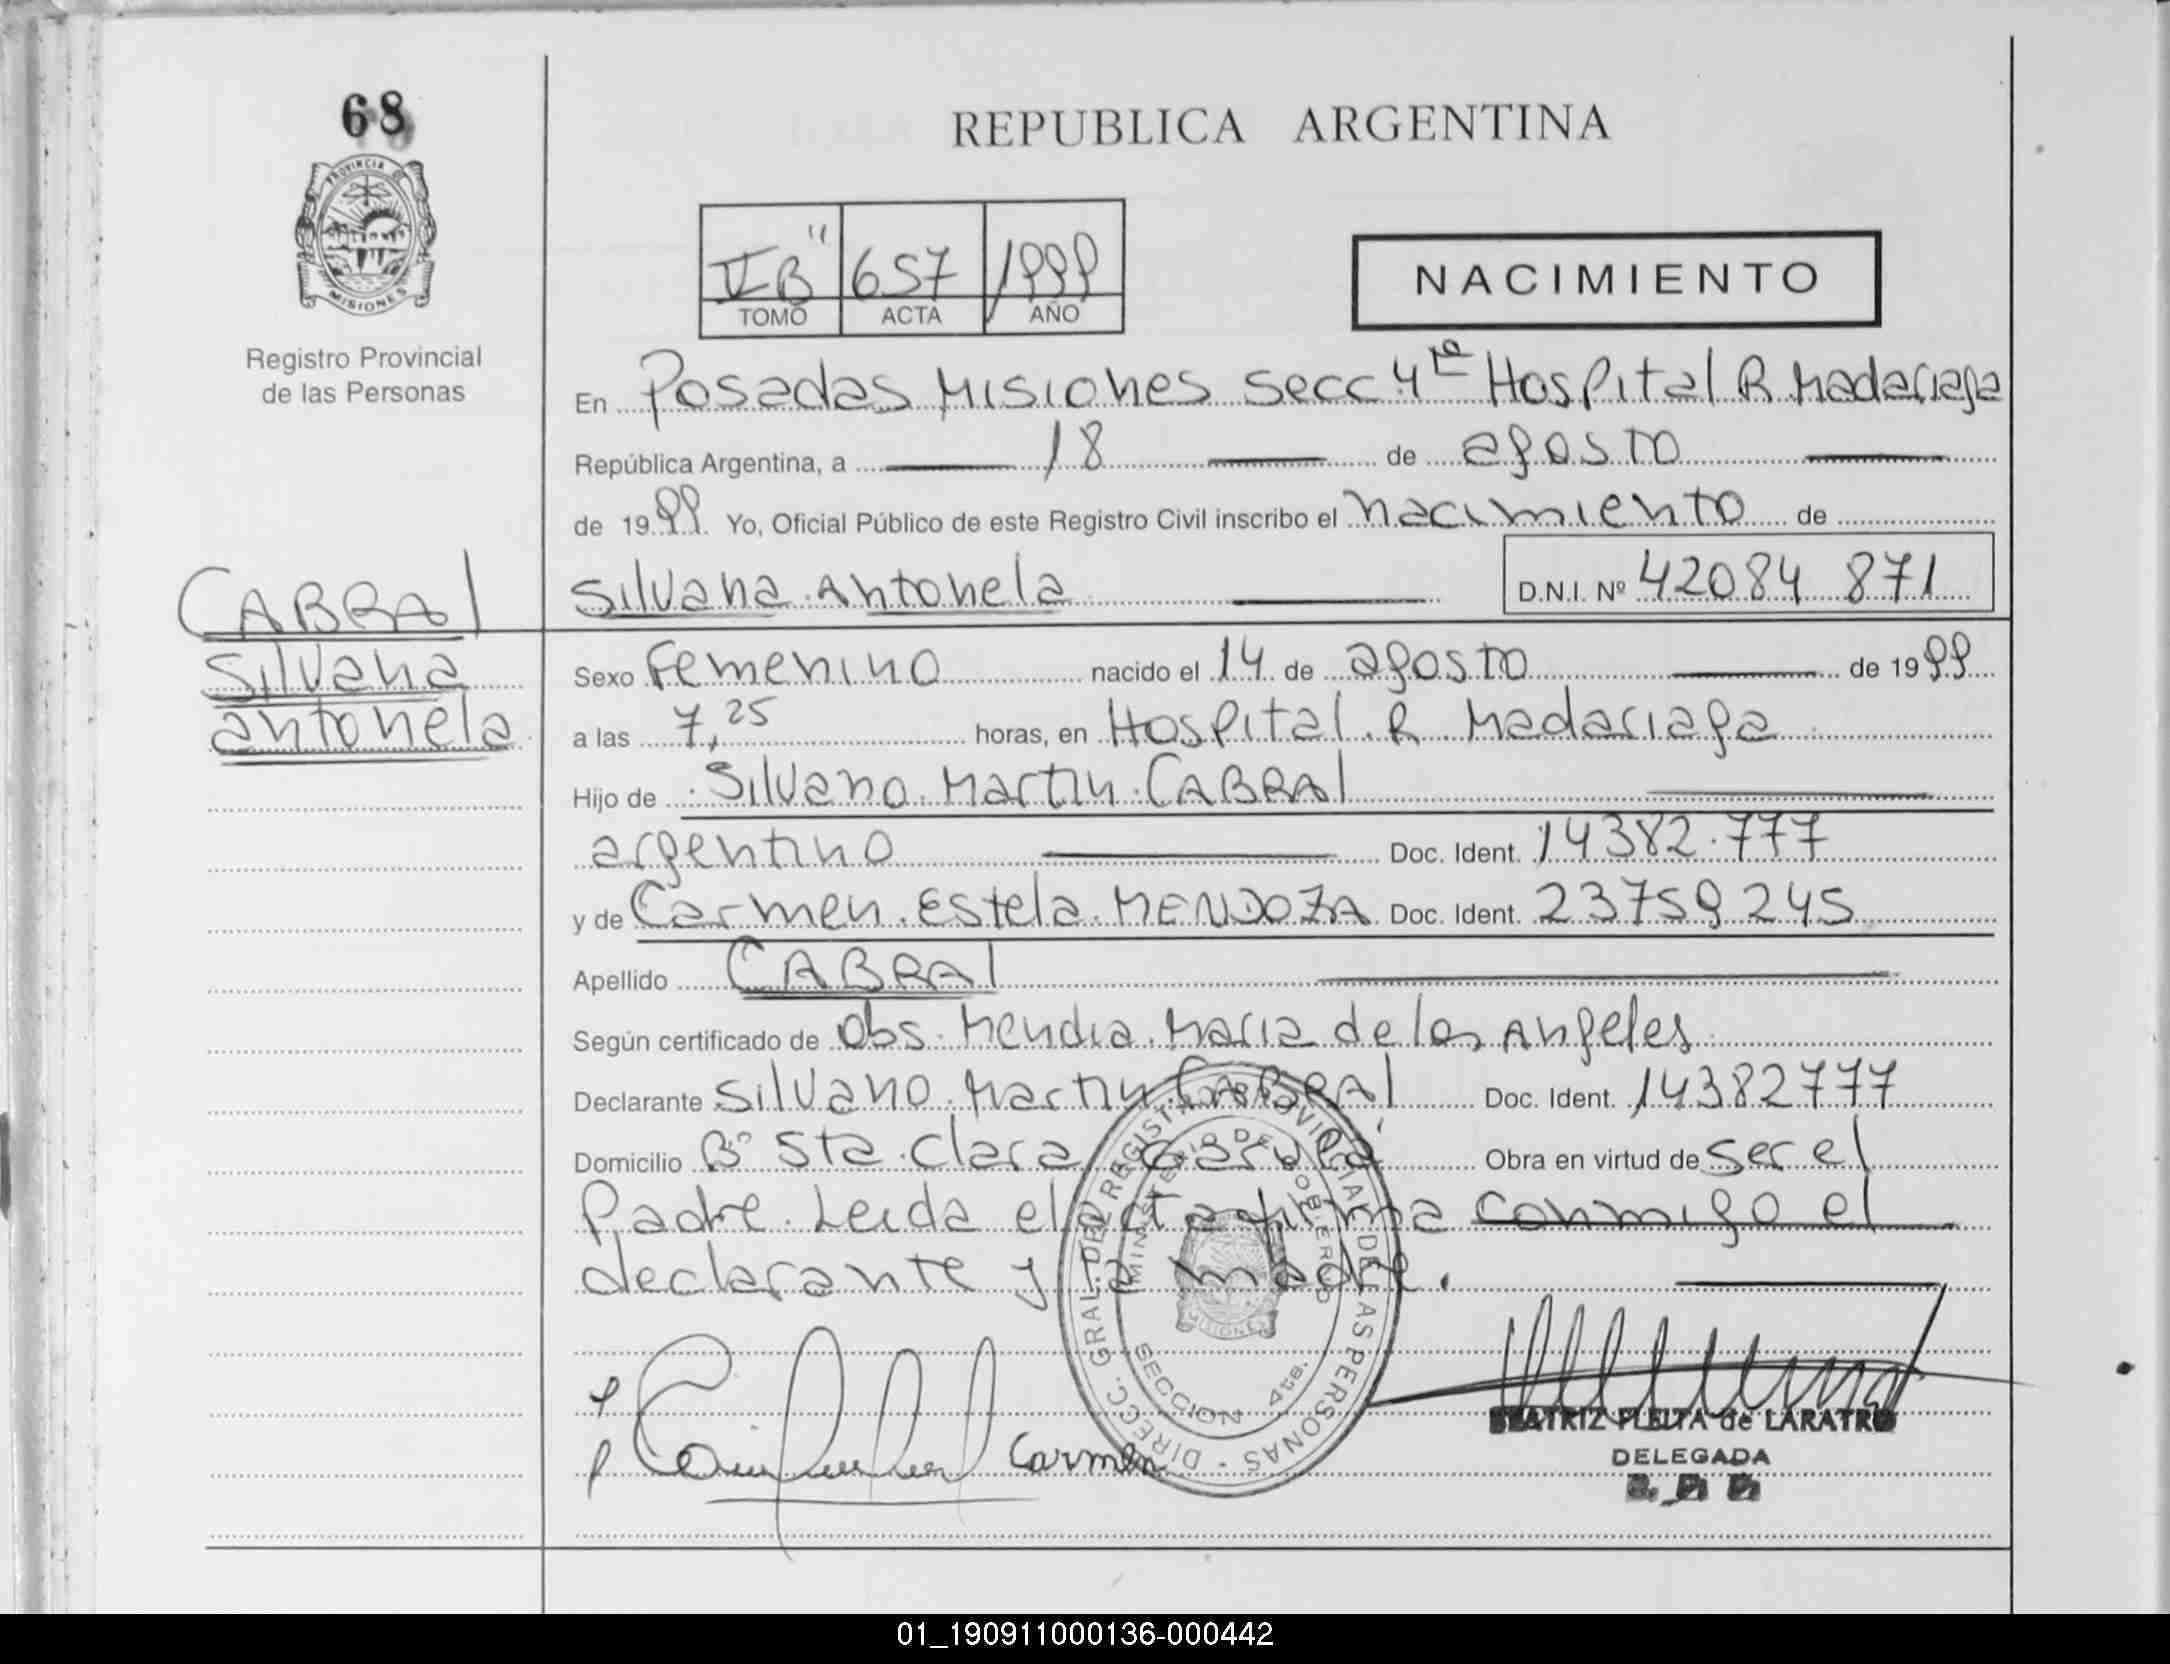 68
PROVINCIA D
MISIONES
Registro Provincial
de las Personas
REPUBLICA ARGENTINA
"B" 657 1999
TOMO ACTA AÑO
NACIMIENTO
En Posadas Misiones Secc. 4ta Hospital R. Madariaga
República Argentina, a 18 de agosto
de 1999. Yo, Oficial Público de este Registro Civil inscribo el nacimiento de
Silvana Antonela D.N.I. Nº 42084 871
CABRAl
Silvana
antonela
Sexo Femenino nacido el 14 de agosto de 1999
a las 7,25 horas, en Hospital R Madariaga
Hijo de Silvano Martin CABRAl
argentino Doc. Ident. 14382.777
y de Carmen Estela MENDOZA Doc. Ident. 23759245
Apellido CABRAl
Según certificado de Obs. Mendia Maria de los Angeles
Declarante Silvano Martin CABRAl Doc. Ident. 14382777
Domicilio Bº Sta. Clara Garupá Obra en virtud de ser el
Padre. Leida el acta firma conmigo el
declarante y la madre.
DIRECC. GRAL. DEL REGISTRO PROVINCIAL DE LAS PERSONAS
MINISTERIO DE GOBIERNO
MISIONES
SECCION 4ta.
Carmen
BEATRIZ FLEITA de LARATRO
DELEGADA
01_190911000136-000442